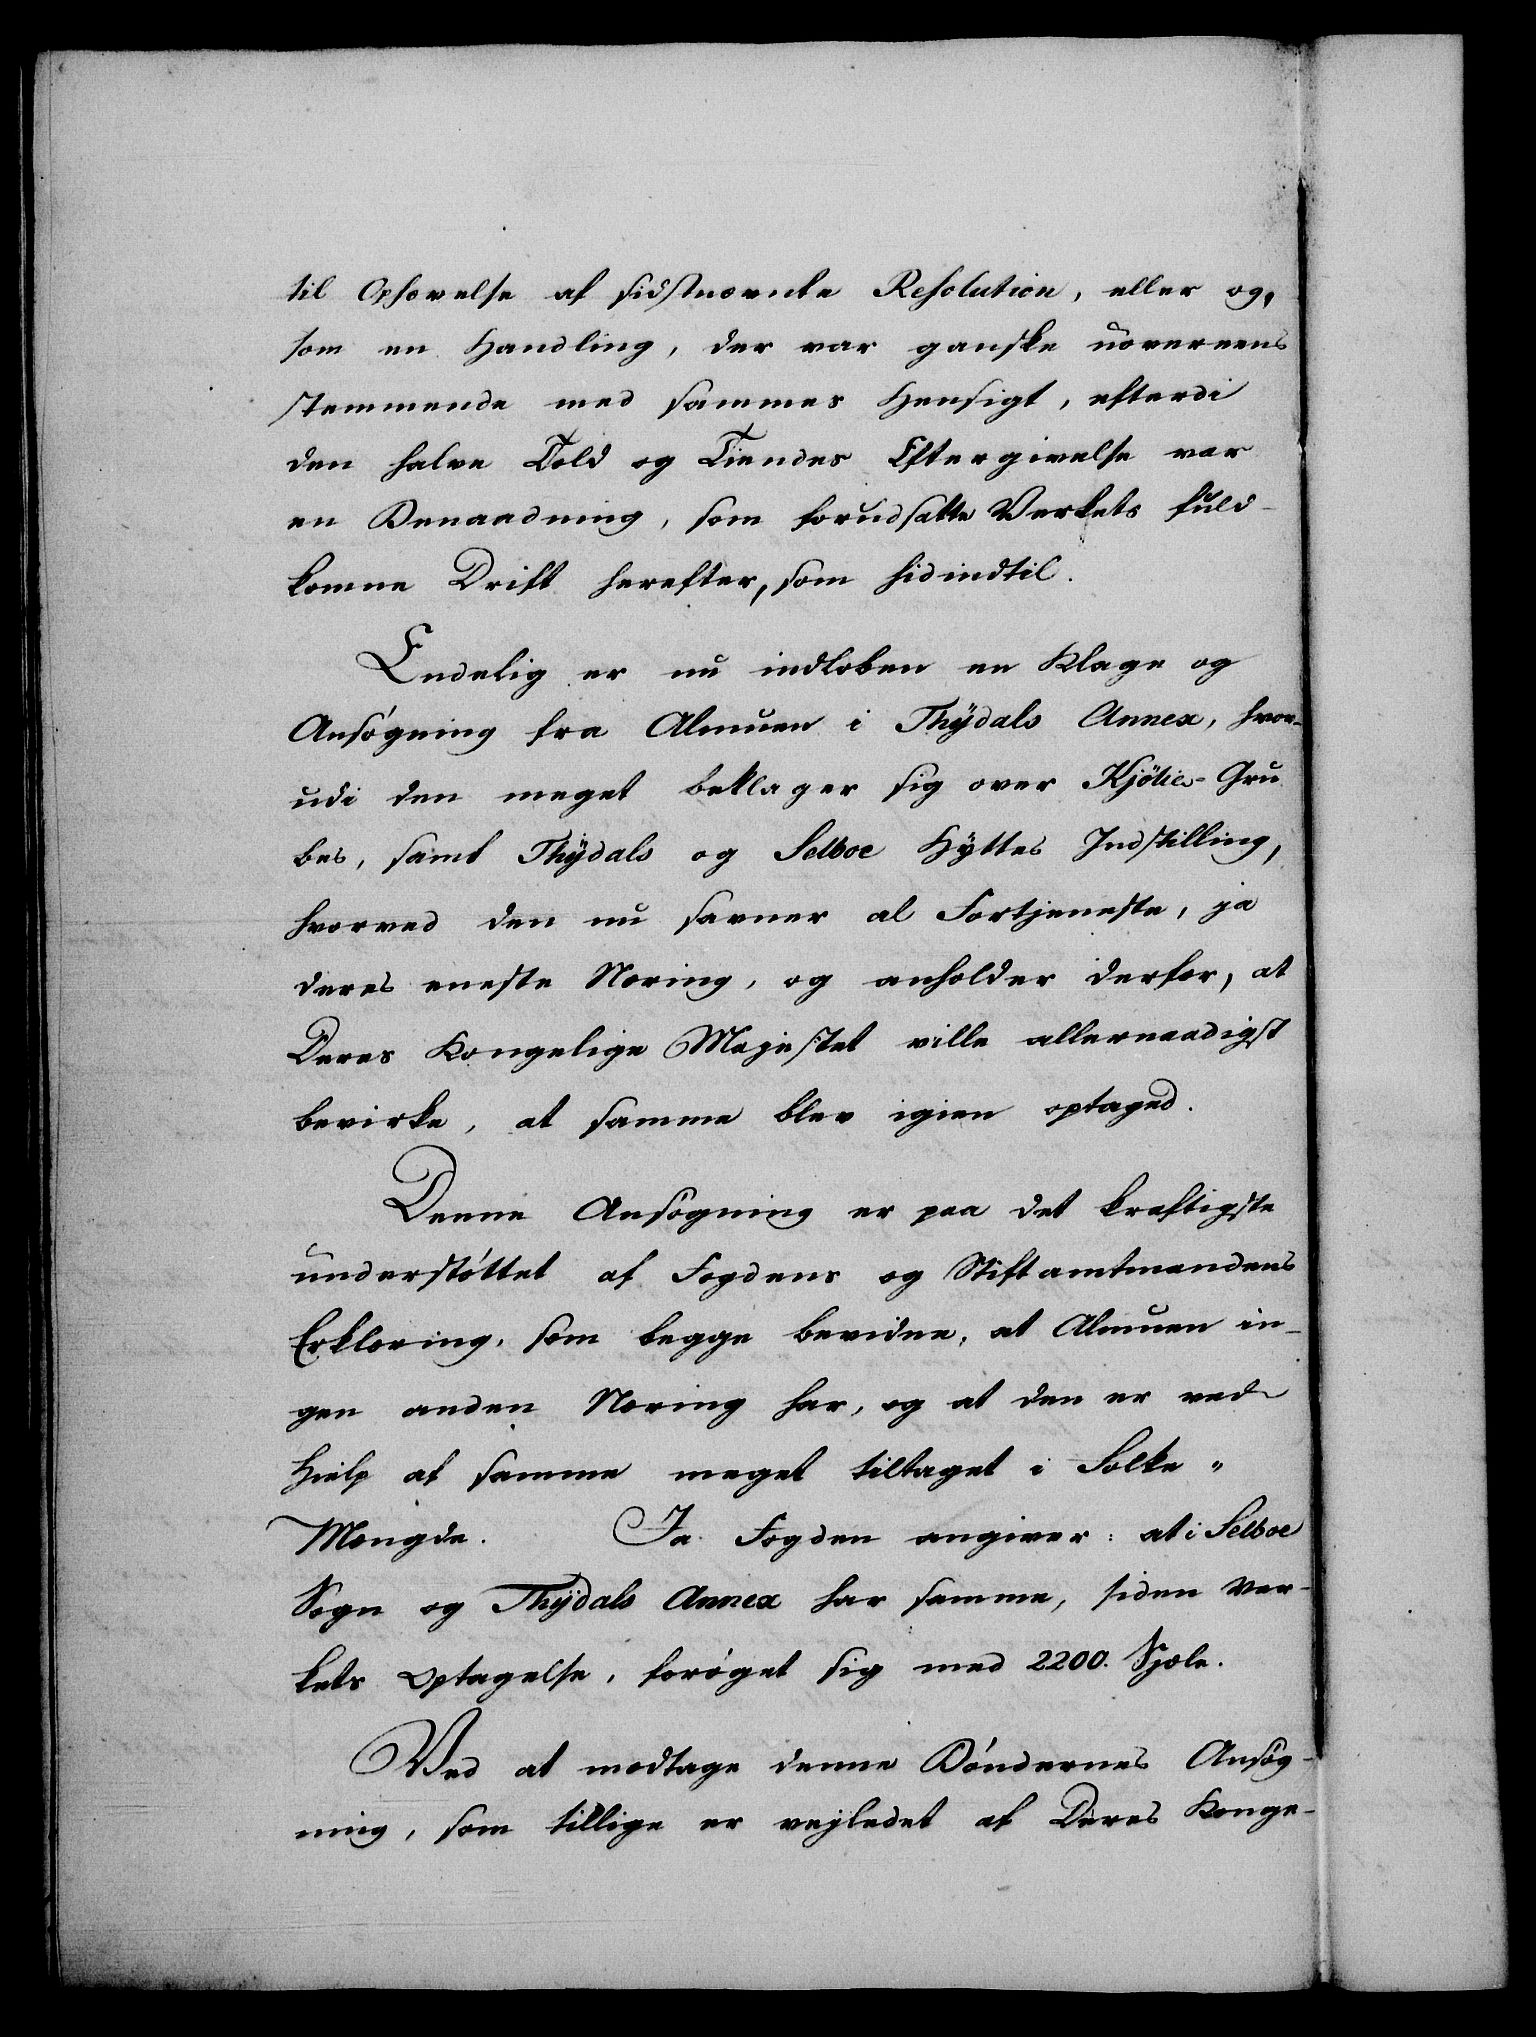 til Ophævelse af sidstnævnte Resolution, eller og,
som en Handling, der var ganske uovereens
stemmende med sammes Hensigt, efterdi
den halve Told og Tiendes Eftergivelse var
en Benaadning, som forudsatte Verkets fuld-
komne Drift herefter, som hidindtil.
Endelig er nu indloben en Klage og
Ansøgning fra Almuen i Thÿdals Annex, hvor-
udi den meget beklager sig over Kjölie-Gru
bes, samt Thÿdals og Selboe Hÿttes Indstilling,
hvorved den nu savner al Fortjeneste, ja
deres eneste Næring, og anholder derfor, at
Deres Kongelige Majestet ville allernaadigst
bevirke, at samme blev igien optaged.
Denne Ansøgning er paa det kraftigste
understøttet af Fogdens og Stiftamtmandens
Erklæring, som begge bevidne, at Almuen in-
gen anden Næring har, og at den er ved
Hielp af samme meget tiltaget i Folke „
Mængde. Ja Fogden angiver: at i Selboe
Sogn og Thÿdals Annex har samme, siden Ver-
kets Optagelse, forøget sig med 2200. Sjæle.
Ved at modtage denne Bøndernes Ansøg-
ning, som tillige er vejledet af Deres Konge-